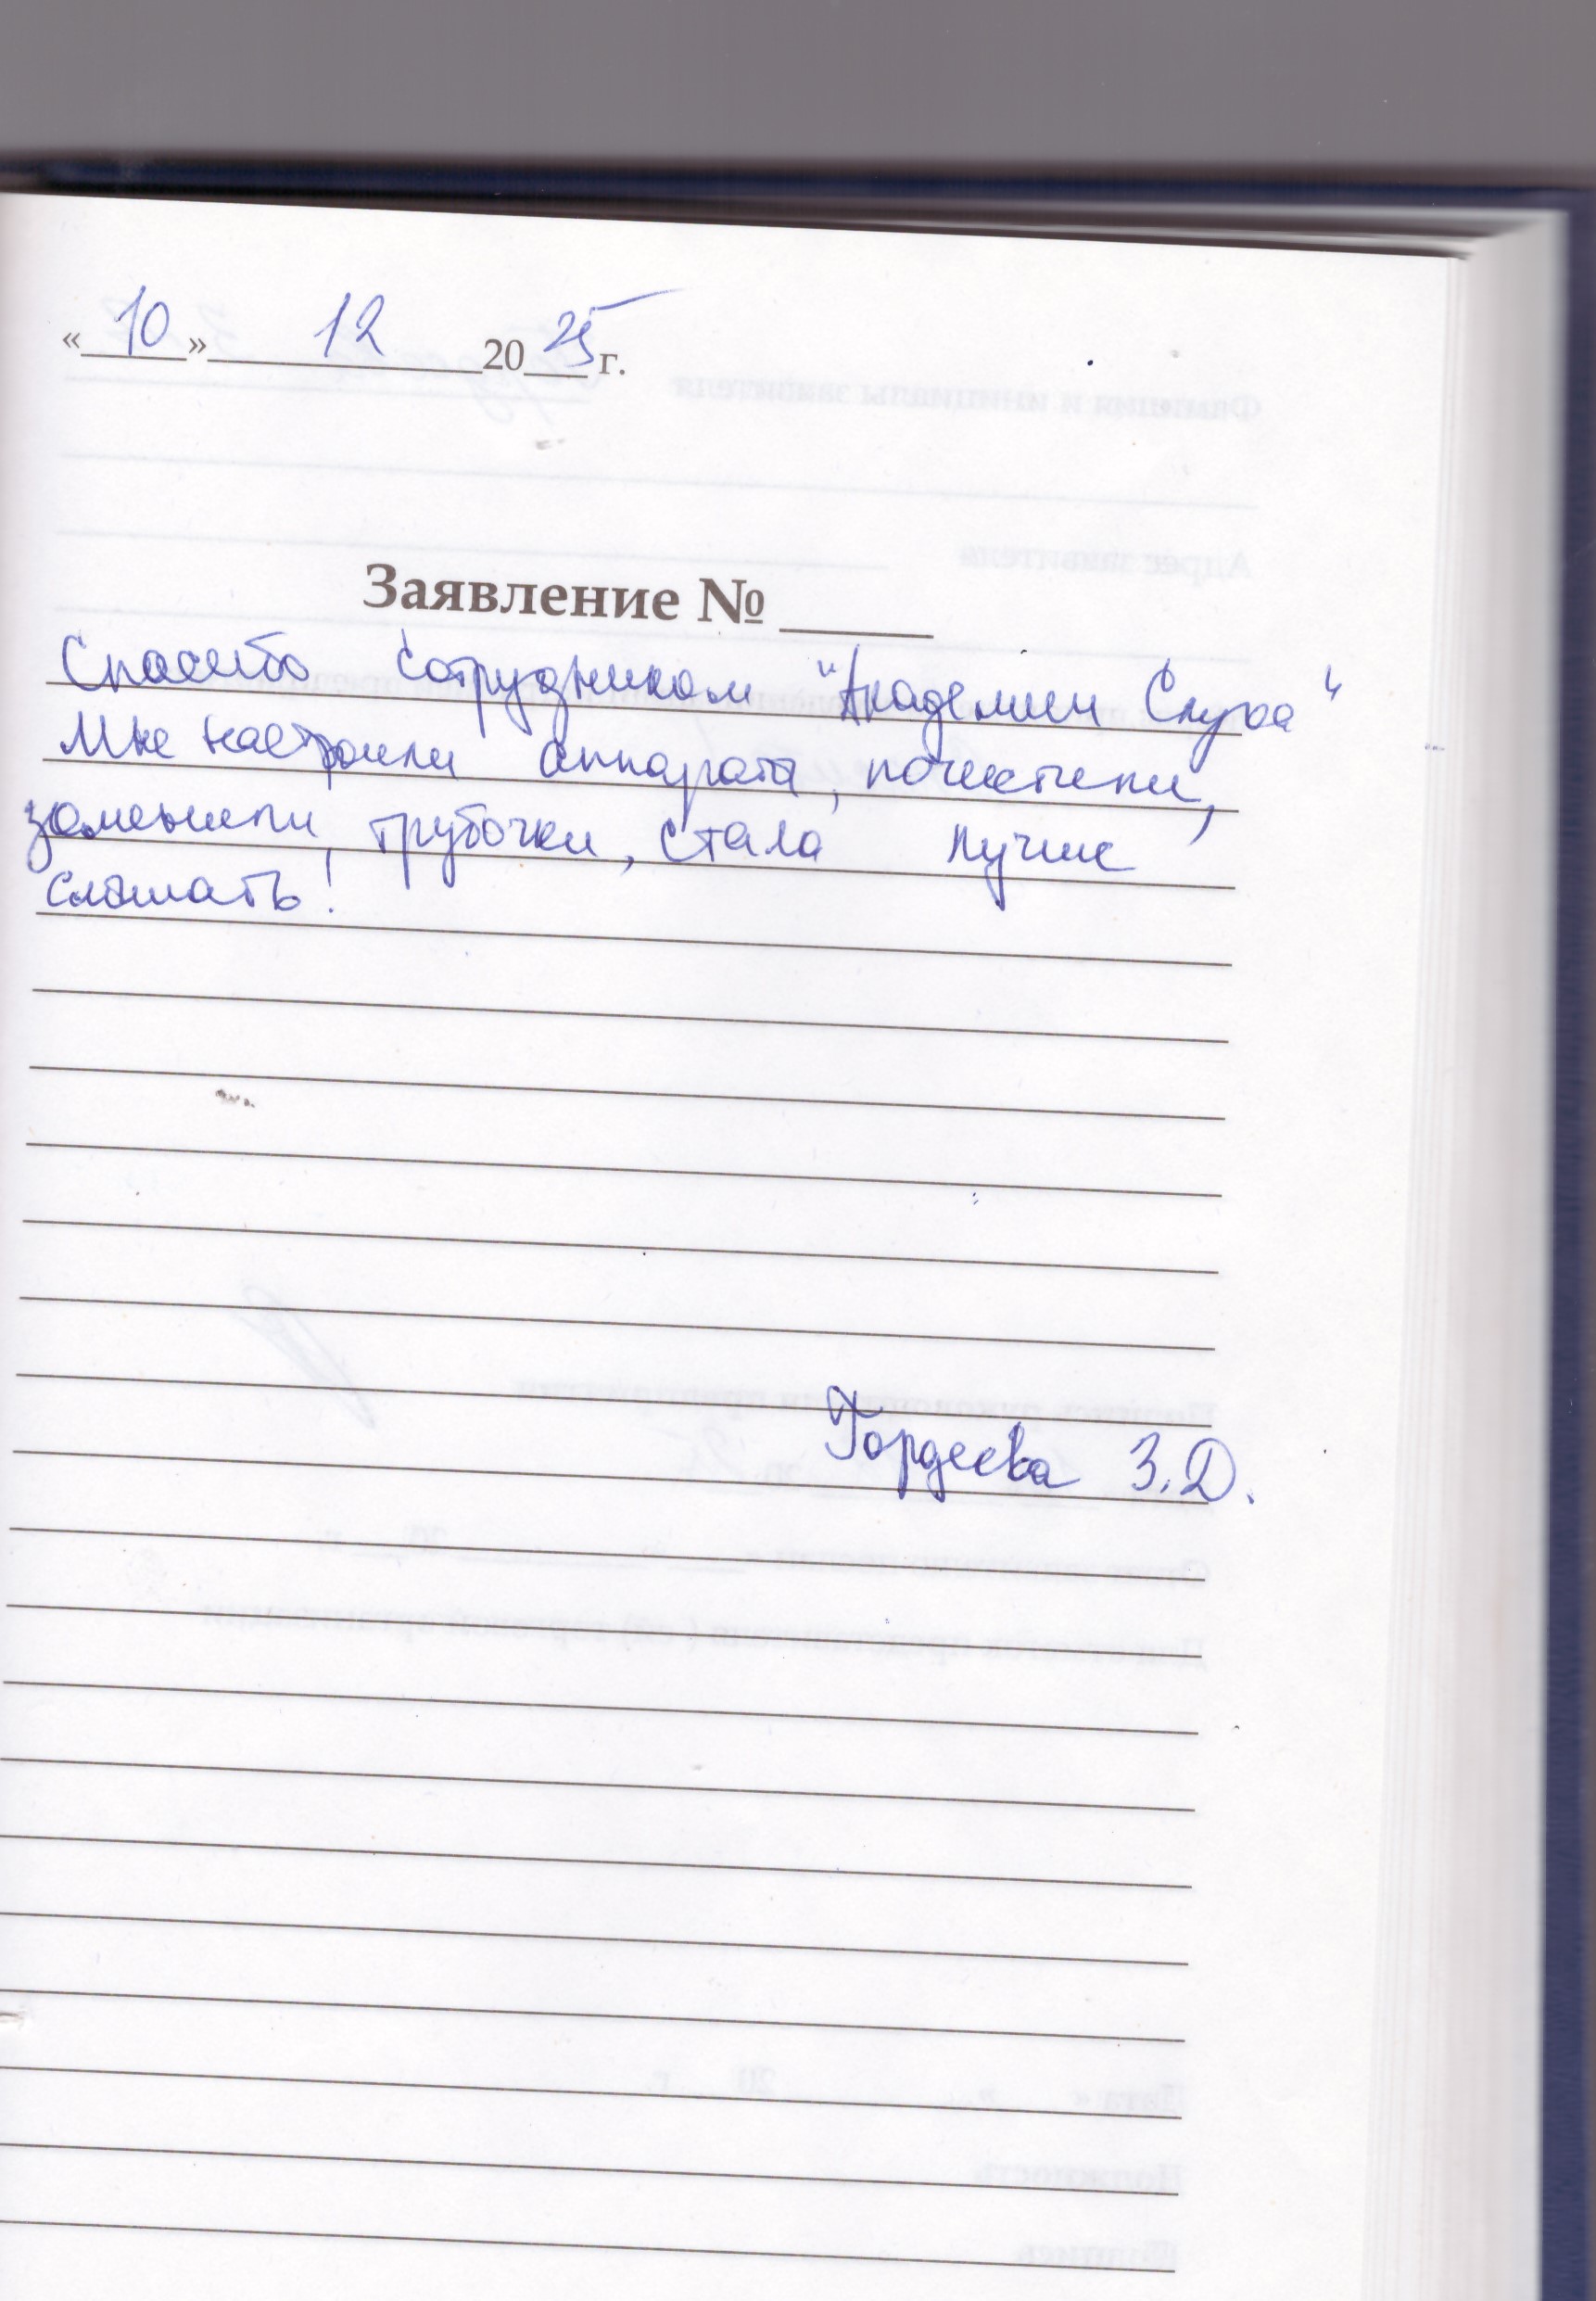 «10» 12 2025 г.
Заявление №
Спасибо сотрудникам "Академии Слуха"
Мне настроили аппарата, почистили,
заменили, трубочки, стала лучше
слышать!
Гордеева З.Д.